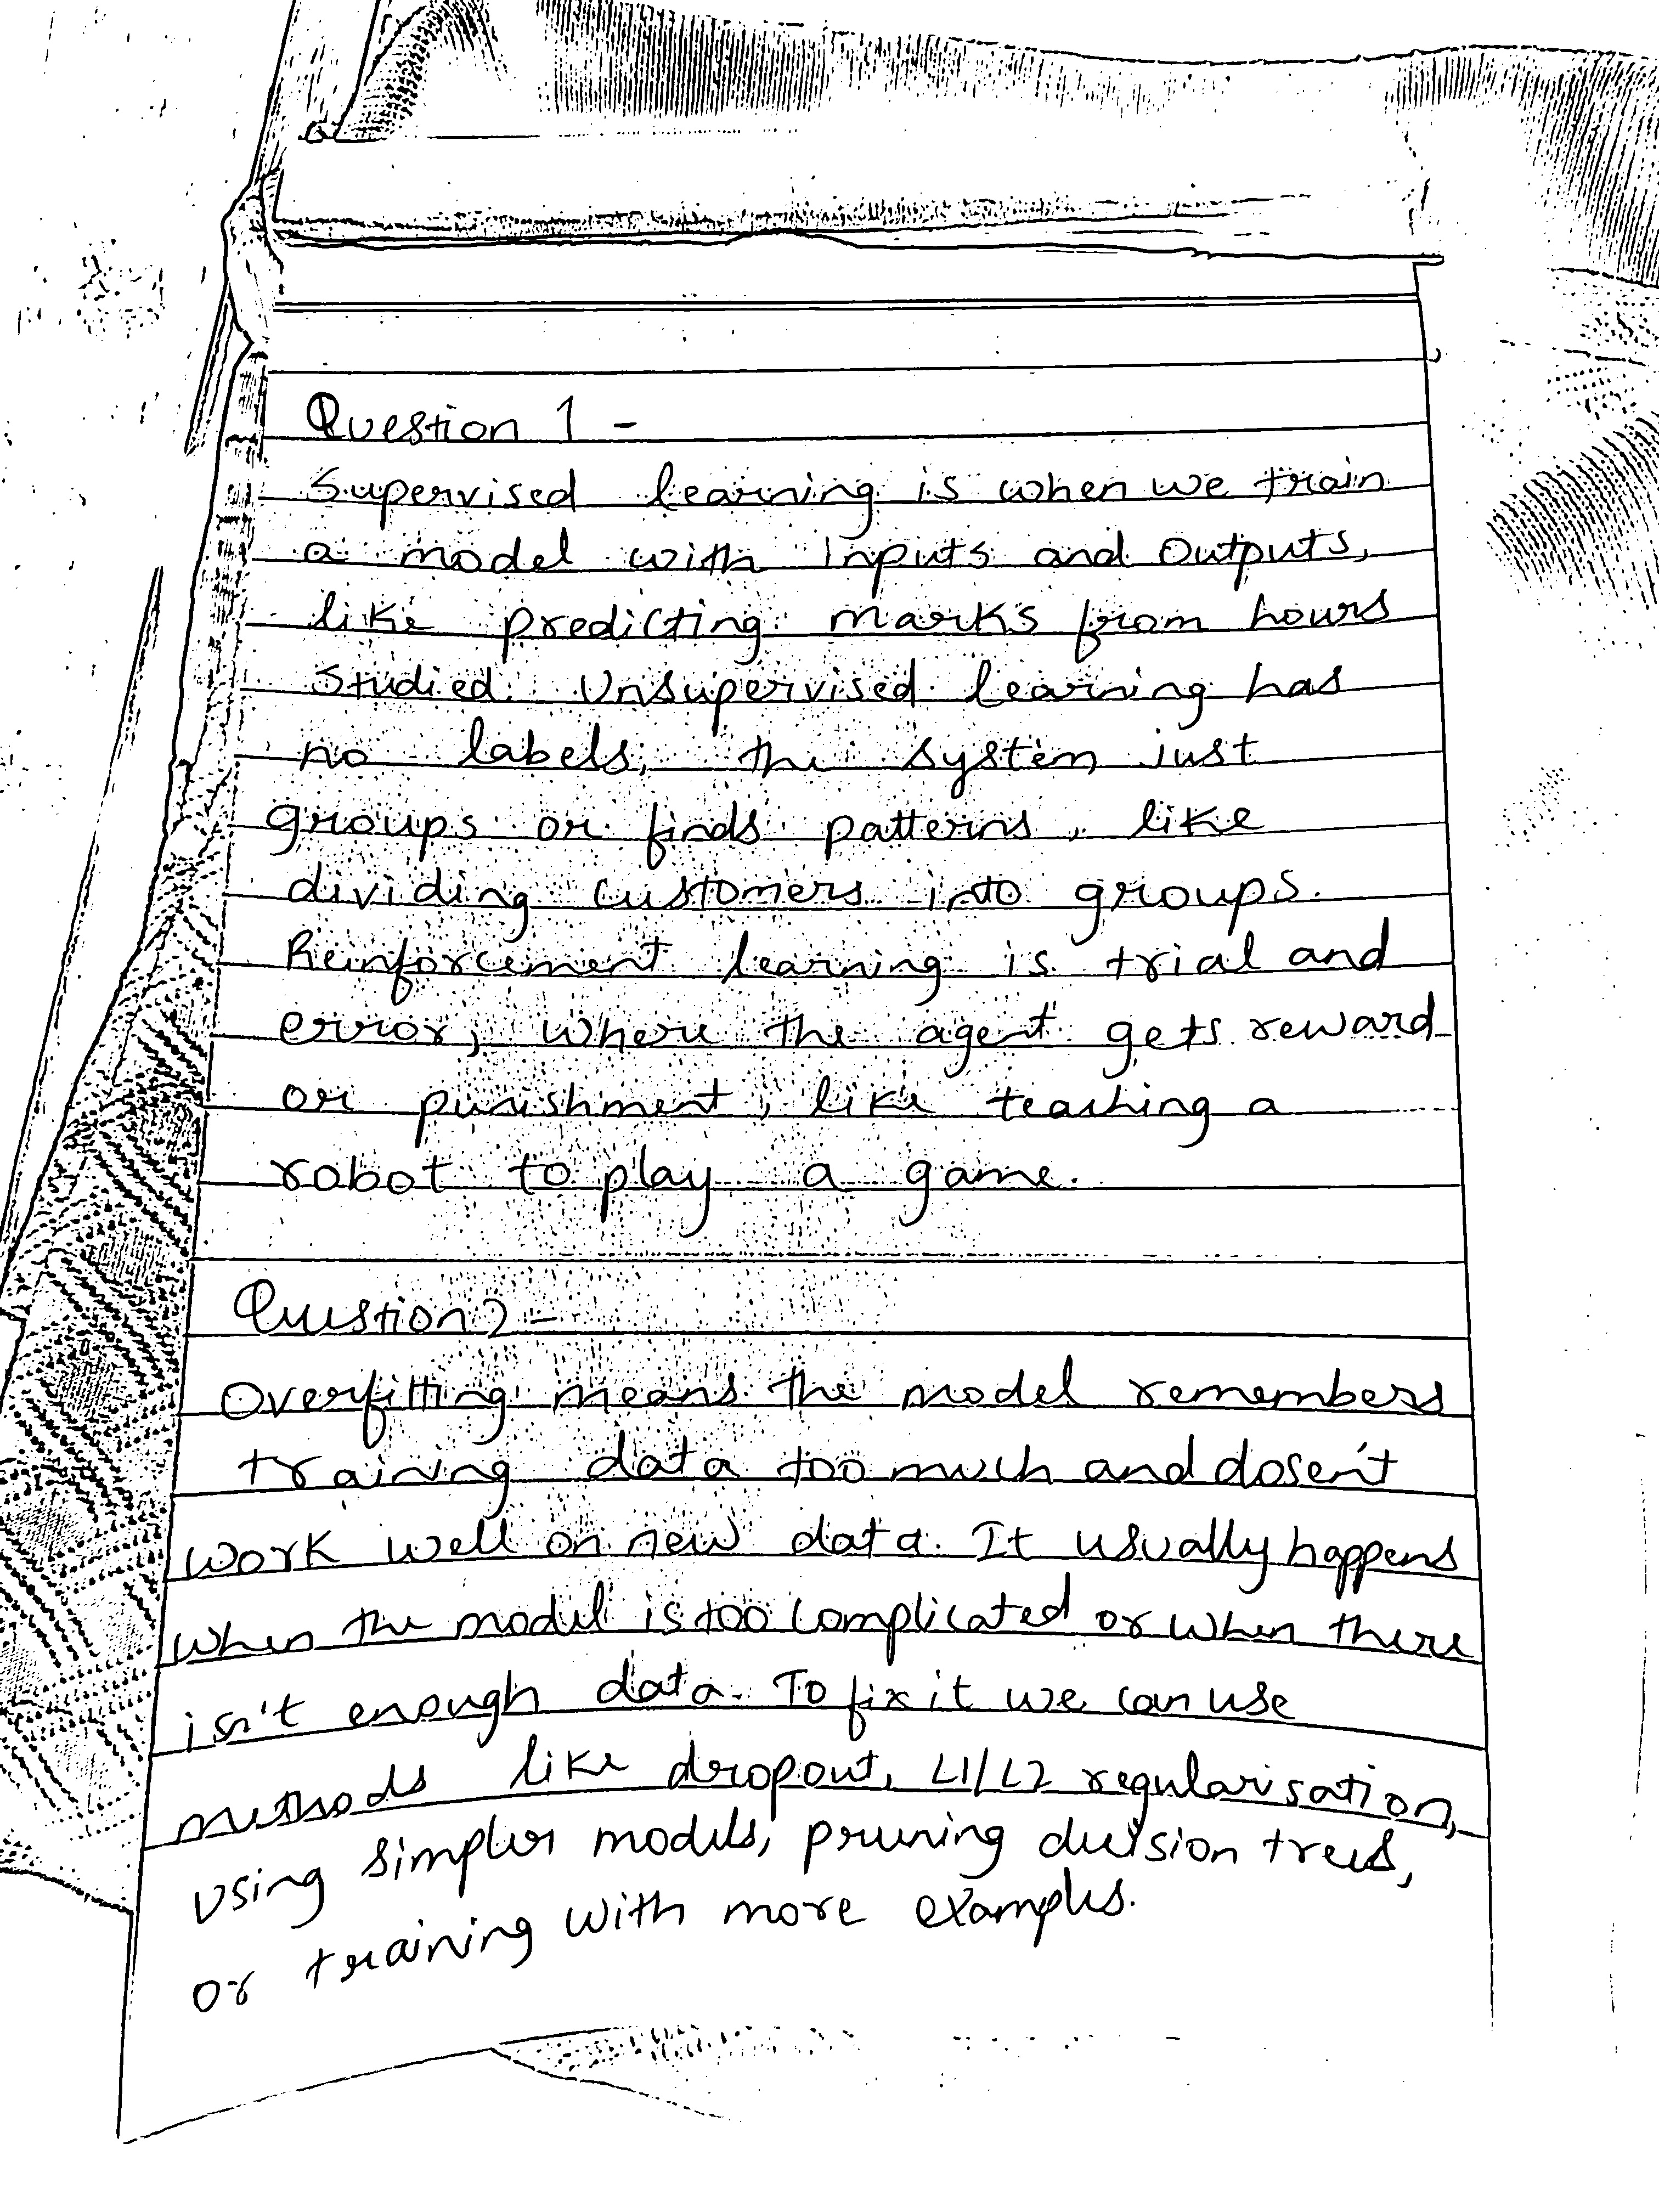 Question 1 -
Supervised learning is when we train
a model with inputs and outputs,
like predicting marks from hours
studied. Unsupervised learning has
no labels, the system just
groups or finds patterns, like
dividing customers into groups.
Reinforcement learning is trial and
error, where the agent gets reward
or punishment, like teaching a
robot to play a game.
Question 2 -
Overfitting means the model remembers
training data too much and dosen't
work well on new data. It usually happens
when the model is too complicated or when there
isn't enough data. To fix it we can use
methods like dropout, L1/L2 regularisation,
using simpler models, pruning decision trees,
or training with more examples.